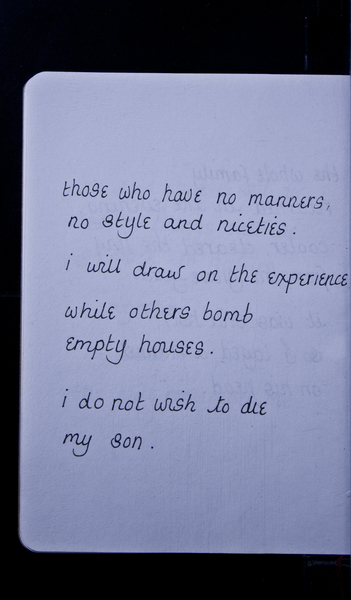 those who have no manners,
no style and niceties.
i will draw on the experience
while others bomb
empty houses.
i do not wish to die
my son.